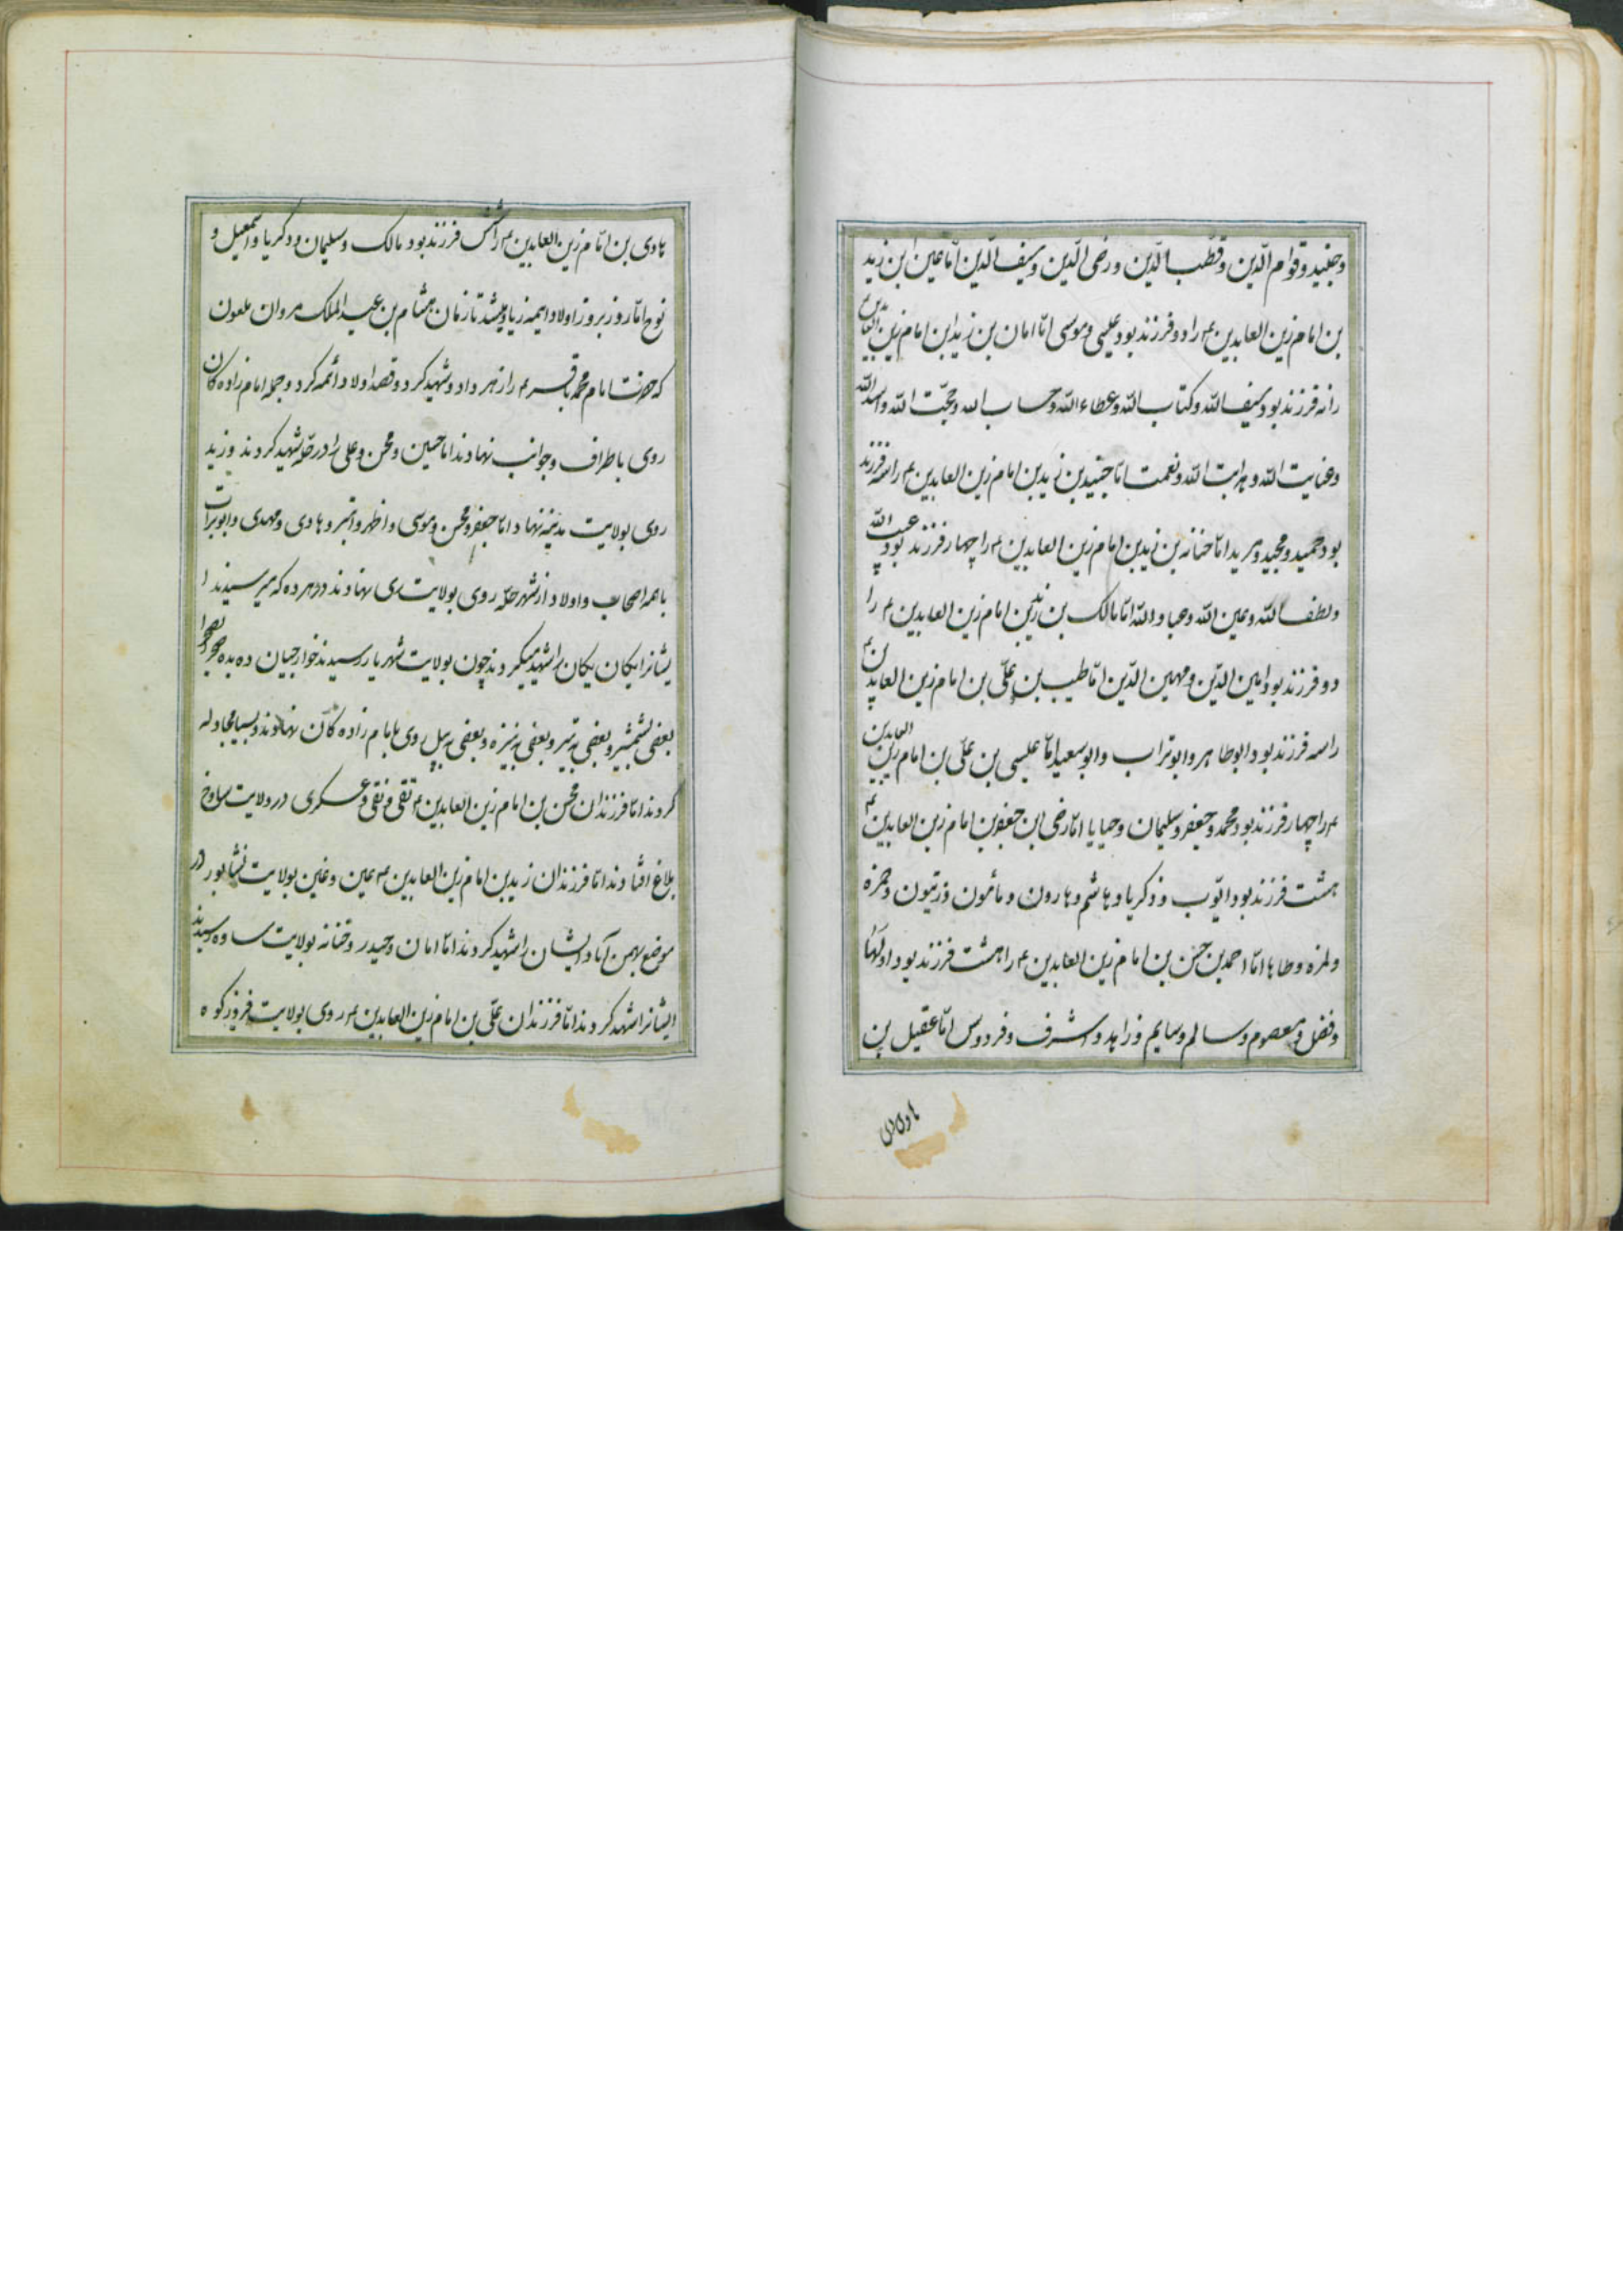 وجنید و قوام الدین و قطب الدین و رضی الدین و سیف الدین امّا عین ابن زید
بن امام زین العابدین ع را دو فرزند بود عیسی و موسی امّا امان بن زید ابن امام زین العابدین ع
را نه فرزند بود سیف الله و کتاب الله و عطاء الله و حساب الله و حجّت الله و اسد الله
و عنایت الله و هدایت الله و نعمت امّا جنید بن زید بن امام زین العابدین ع را سه فرزند
بود حمید و مجید و مرید امّا حنانه بن زید بن امام زین العابدین ع را چهار فرزند بود عبد الله
و لطف الله و عین الله و عباد الله امّا مالک بن زید بن زین امام زین العابدین ع را
دو فرزند بود امین الدّین و مهین الدّین امّا طیب بن علّی بن امام زین العابدین ع
را سه فرزند بود ابوطاهر و ابوتراب و ابوسعید امّا عیسی بن علّی بن امام زین العابدین
ع را چهار فرزند بود محمد و جعفر و سلیمان و حیایا امّا رضی ابن جعفر بن امام زین العابدین ع
هشت فرزند بود ایّوب و ذکریا و هاشم و هارون و مأمون و زیتون و حمزه
و لمزه و طاها امّا احمد بن حسن بن امام زین العابدین ع را هشت فرزند بود
و فضل و معصوم و سالم و سایم و زاهد و اشرف و فردوس امّا عقیل بن
هادی بن
هادی بن امام زین العابدین ع را شش فرزند بود مالک و سلیمان و ذکریا و اسمعیل و
نوح امّا روز بروز اولاد ایمه زیاد میشد تا زمان هشام بن عبد الملک مروان ملعون
که حضرت امام محمد باقر ع را زهر داد و شهید کرد و قصد اولاد ائمه کرد و جمله امام زاده کان
روی باطراف و جوانب نهادند امّا حسین و محسن و علی را در حلّه شهید کردند و زید
روی بولایت مدینه نهاد امّا جعفر و محسن و موسی و اظهر و اتبر و هادی و مهدی و ابوبرات
با همه اصحاب و اولاد از شهر حلّه روی بولایت ری نهادند در هر ده که میرسیدند ا
یشانرا یکان یکان را شهید میکردند چون بولایت شهریار رسیدند خوارجیان ده به ده صحرا بصحرا
بعضی بشمشیر و بعضی به تیر و بعضی به نیزه و بعضی به بیل روی بامام زاده کان نهادند و بسیا مجادله
کردند امّا فرزندان محسن بن امام زین العابدین ع تقی و نقی و عسکری در ولایت ساوخ
بلاغ افتادند امّا فرزندان زید بن امام زین العابدین ع عین و غین بولایت نشابور در
موضع بهمن آباد ایشان را شهید کردند امّا امان و حیدر و حنانه بولایت ساوه رسیدند
ایشانرا شهید کردند امّا فرزندان علّی بن امام زین العابدین ع روی بولایت فروزکوه